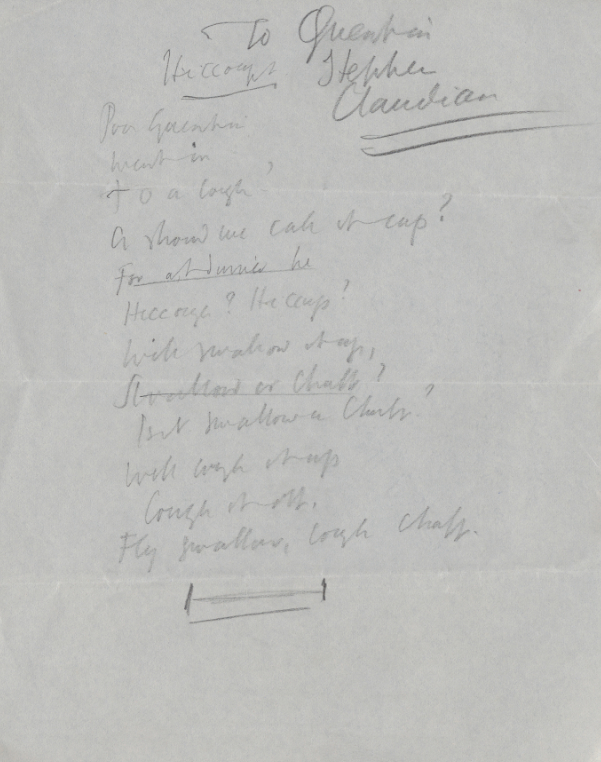 To Quentin
Hiccough Stephen
Claudian
Poor Quentin
went in
to a cough?
Or should we call it cup?
For at dinner he
Hiccough? Hiccup?
Will swallow it up,
Swallow or chaff?
Is it swallow or Chaff?
Will cough it up
Cough it off.
Fly swallow, cough chaff.